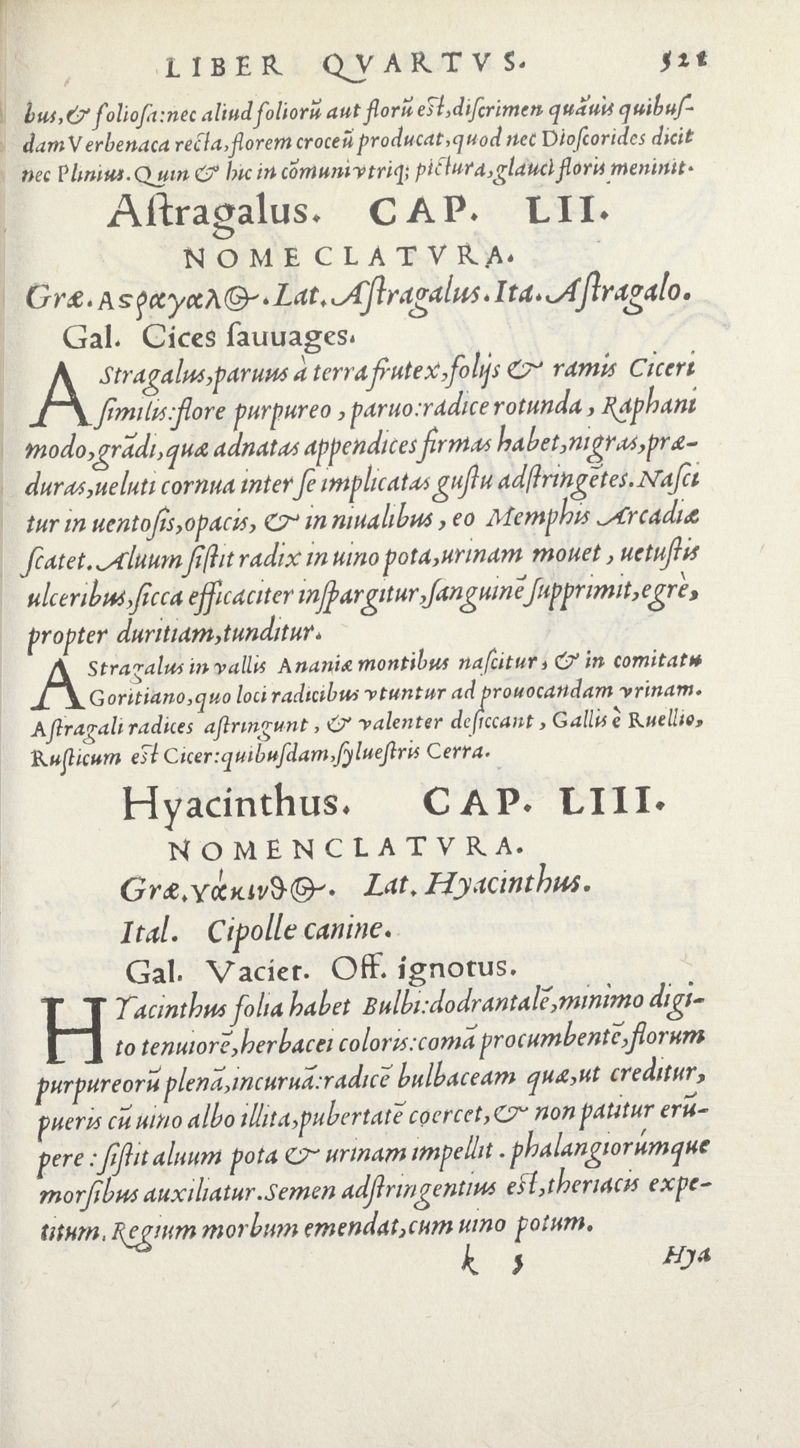 LIBER QVARTVS. 521
bus,& folioſa:nec aliud foliorū aut florū eſt,diſcrimen quāuis quibuſ-
dam Verbenaca recta,florem croceū producat,quod nec Dioſcorides dicit
nec Plinius.Quin & hic in cōmuni vtriq; pictura,glauci floris meninit.
Aſtragalus. CAP. LII.
NOMECLATVRA.
Græ. Ασραγαλ⊙. Lat. Aſtragalus. Ita. Aſtragalo.
Gal. Cices ſauuages.
AStragalus,paruus à terra frutex,folijs & ramis Ciceri
ſimilis:flore purpureo , paruo:radice rotunda , Raphani
modo,grādi,quæ adnatas appendices firmas habet,nigras,præ-
duras,ueluti cornua inter ſe implicatas guſtu adſtringētes.Naſci
tur in uentoſis,opacis, & in niualibus , eo Memphis Arcadiæ
ſcatet.Aluum ſiſtit radix in uino pota,urinam mouet , uetuſtis
ulceribus,ſicca efficaciter inſpargitur,ſanguinē ſupprimit,egrè,
propter duritiam,tunditur.
AStragalus in vallis Ananiæ montibus naſcitur, & in comitatu
Goritiano,quo loci radicibus vtuntur ad prouocandam vrinam.
Aſtragali radices aſtringunt , & valenter deſiccant , Gallis è Ruellio,
Ruſticum eſt Cicer:quibuſdam,ſylueſtris Cerra.
Hyacinthus. CAP. LIII.
NOMENCLATVRA.
Græ.γάκινθ⊙. Lat. Hyacinthus.
Ital. Cipolle canine.
Gal. Vaciet. Off. ignotus.
HYacinthus folia habet Bulbi:dodrantalē,minimo digi-
to tenuiorē,herbacei coloris:comā procumbentē,florum
purpureorū plenā,incuruā:radicē bulbaceam quæ,ut creditur,
pueris cū uino albo illita,pubertatē coercet,& non patitur erū-
pere : ſiſtit aluum pota & urinam impellit . phalangiorúmque
morſibus auxiliatur.Semen adſtringentius eſt,theriacis expe-
titum. Regium morbum emendat,cum uino potum.
k 5 Hya